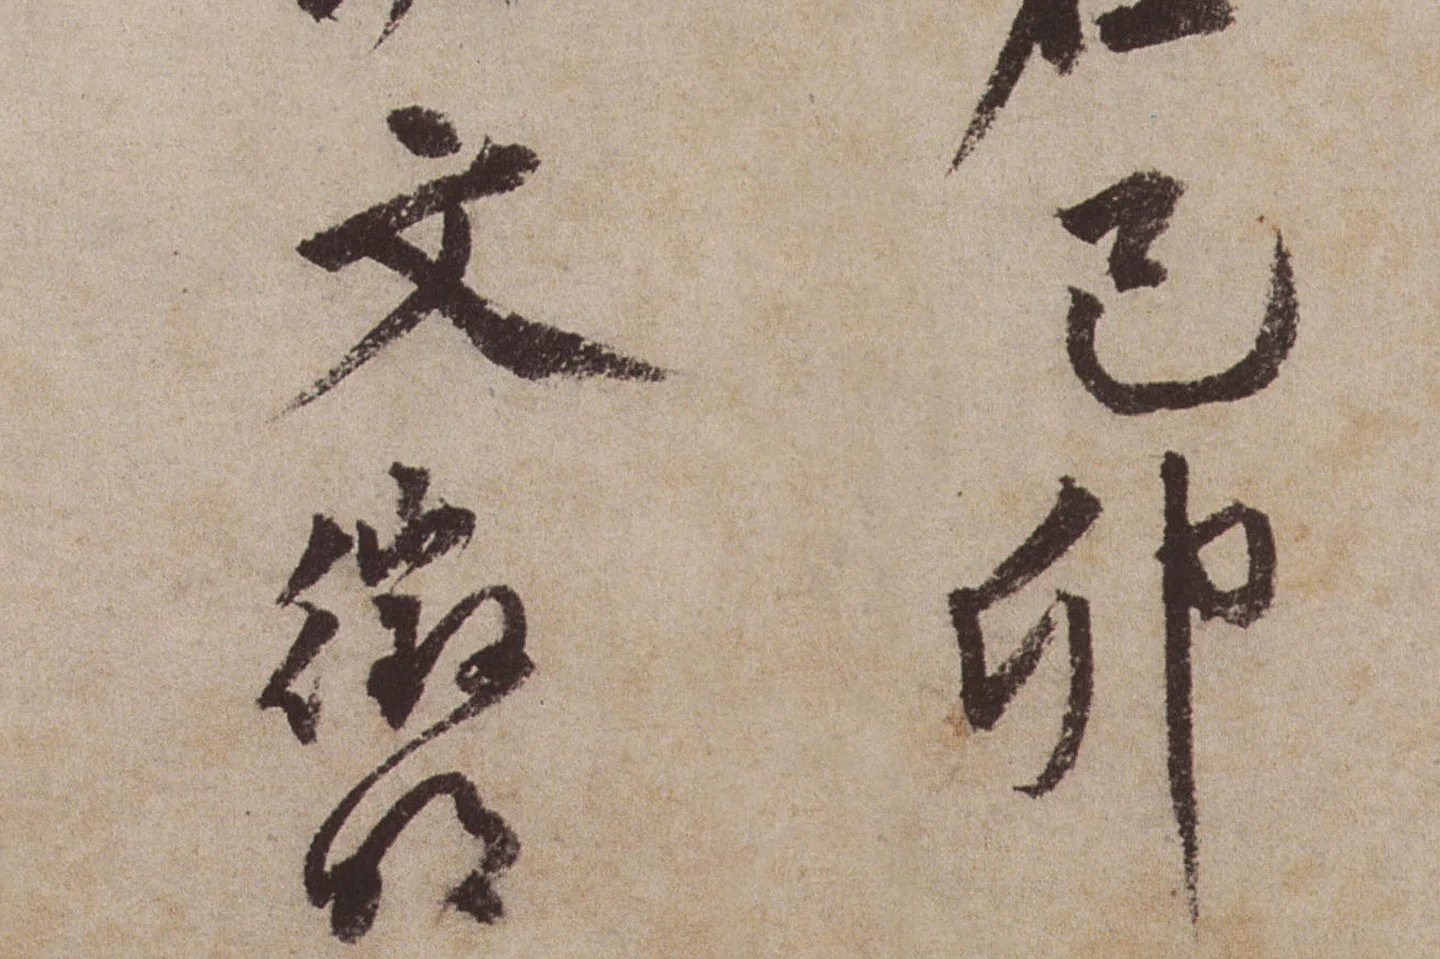 己卯
文徵明